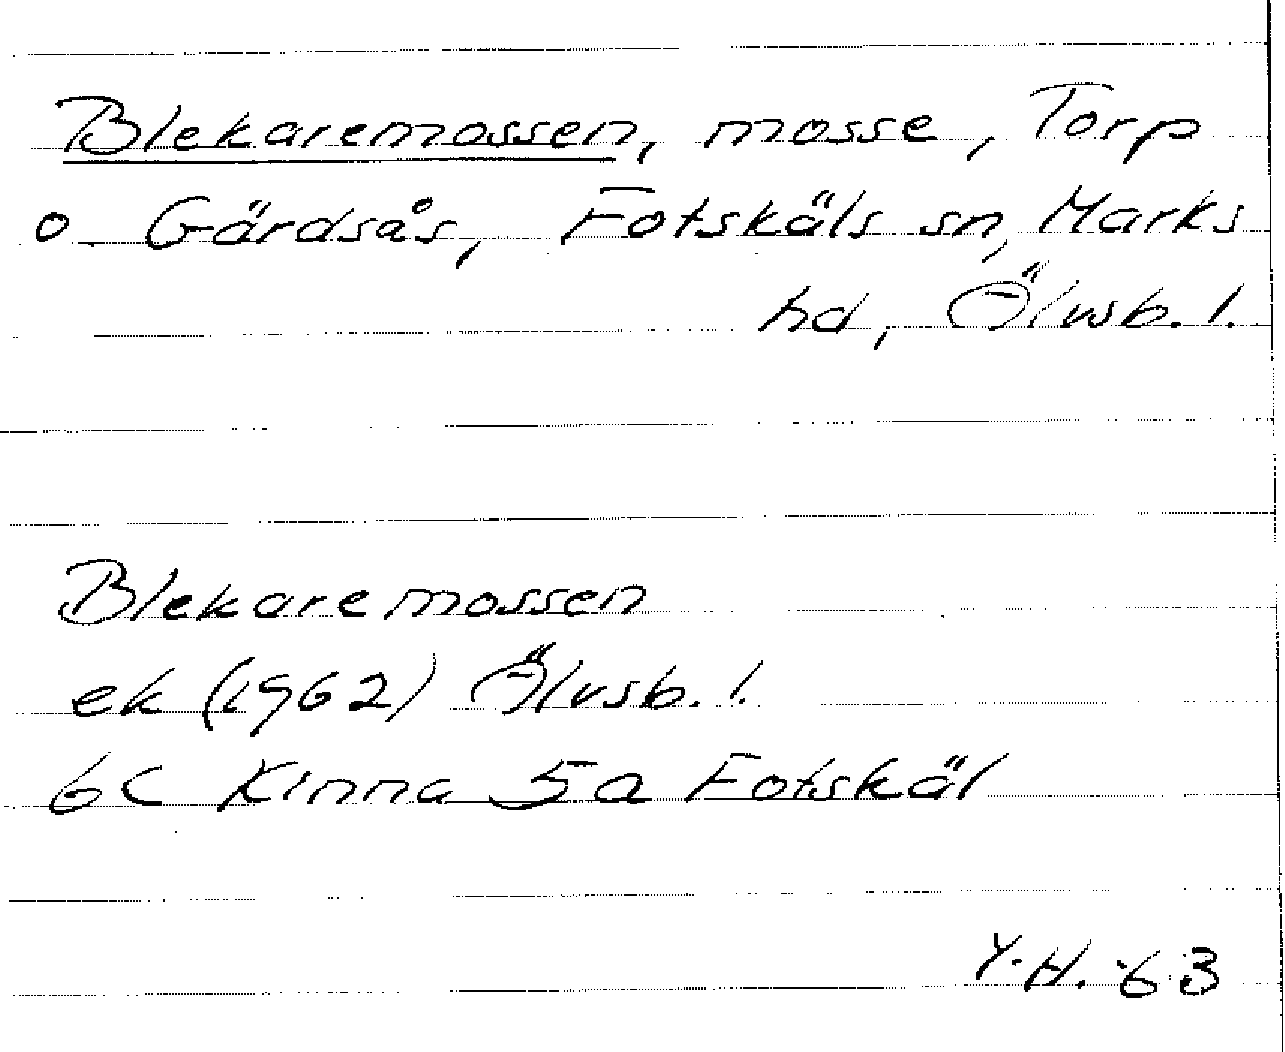 Blekaremossen, mosse, Torp
o Gärdsås, Fotskäls sn, Marks
hd, Älvsb. l.
Blekaremossen
ek (1962) Älvsb. l.
6C Kinna 5a Fotskäl
Y.H. 63